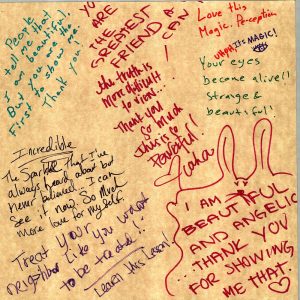 People
tell me that
I am beautiful.
But you are the
First to show me.
Thank you!
YOU ARE
THE
GREATEST
FRIEND A
CAN
I
the truth is
More difficult
to
Thank you
So much
This is so
Powerful!
Love this
Magic Perception
IT'S MAGIC!
Your eyes
become alive!!
Strange &
beautiful!
Incredible
The Sparkle That I've
always heard about but
never believed. I can
see it now. So Much
more love for myself.
Treat your
neighbor like you want
to be treated!!
Learn this Lesson!
I AM
BEAUTIFUL
AND ANGELIC
THANK YOU
FOR SHOWING
ME THAT.